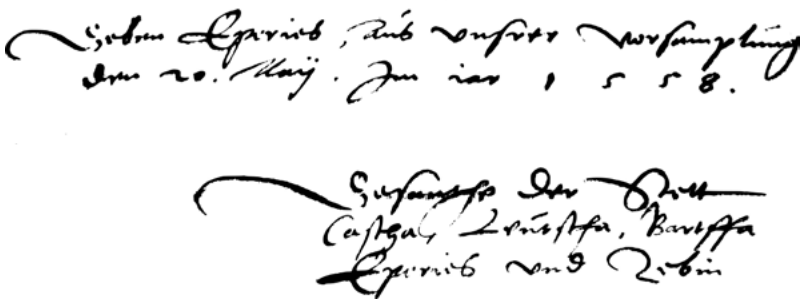 Geben Eperies, Aus vnsrer Versamplung
den 20. Maij. Im iar 1 5 5 8.
Gesanthe der Stett
Cascha, Leutscha, Bartffa
Eperies vnd Zebin